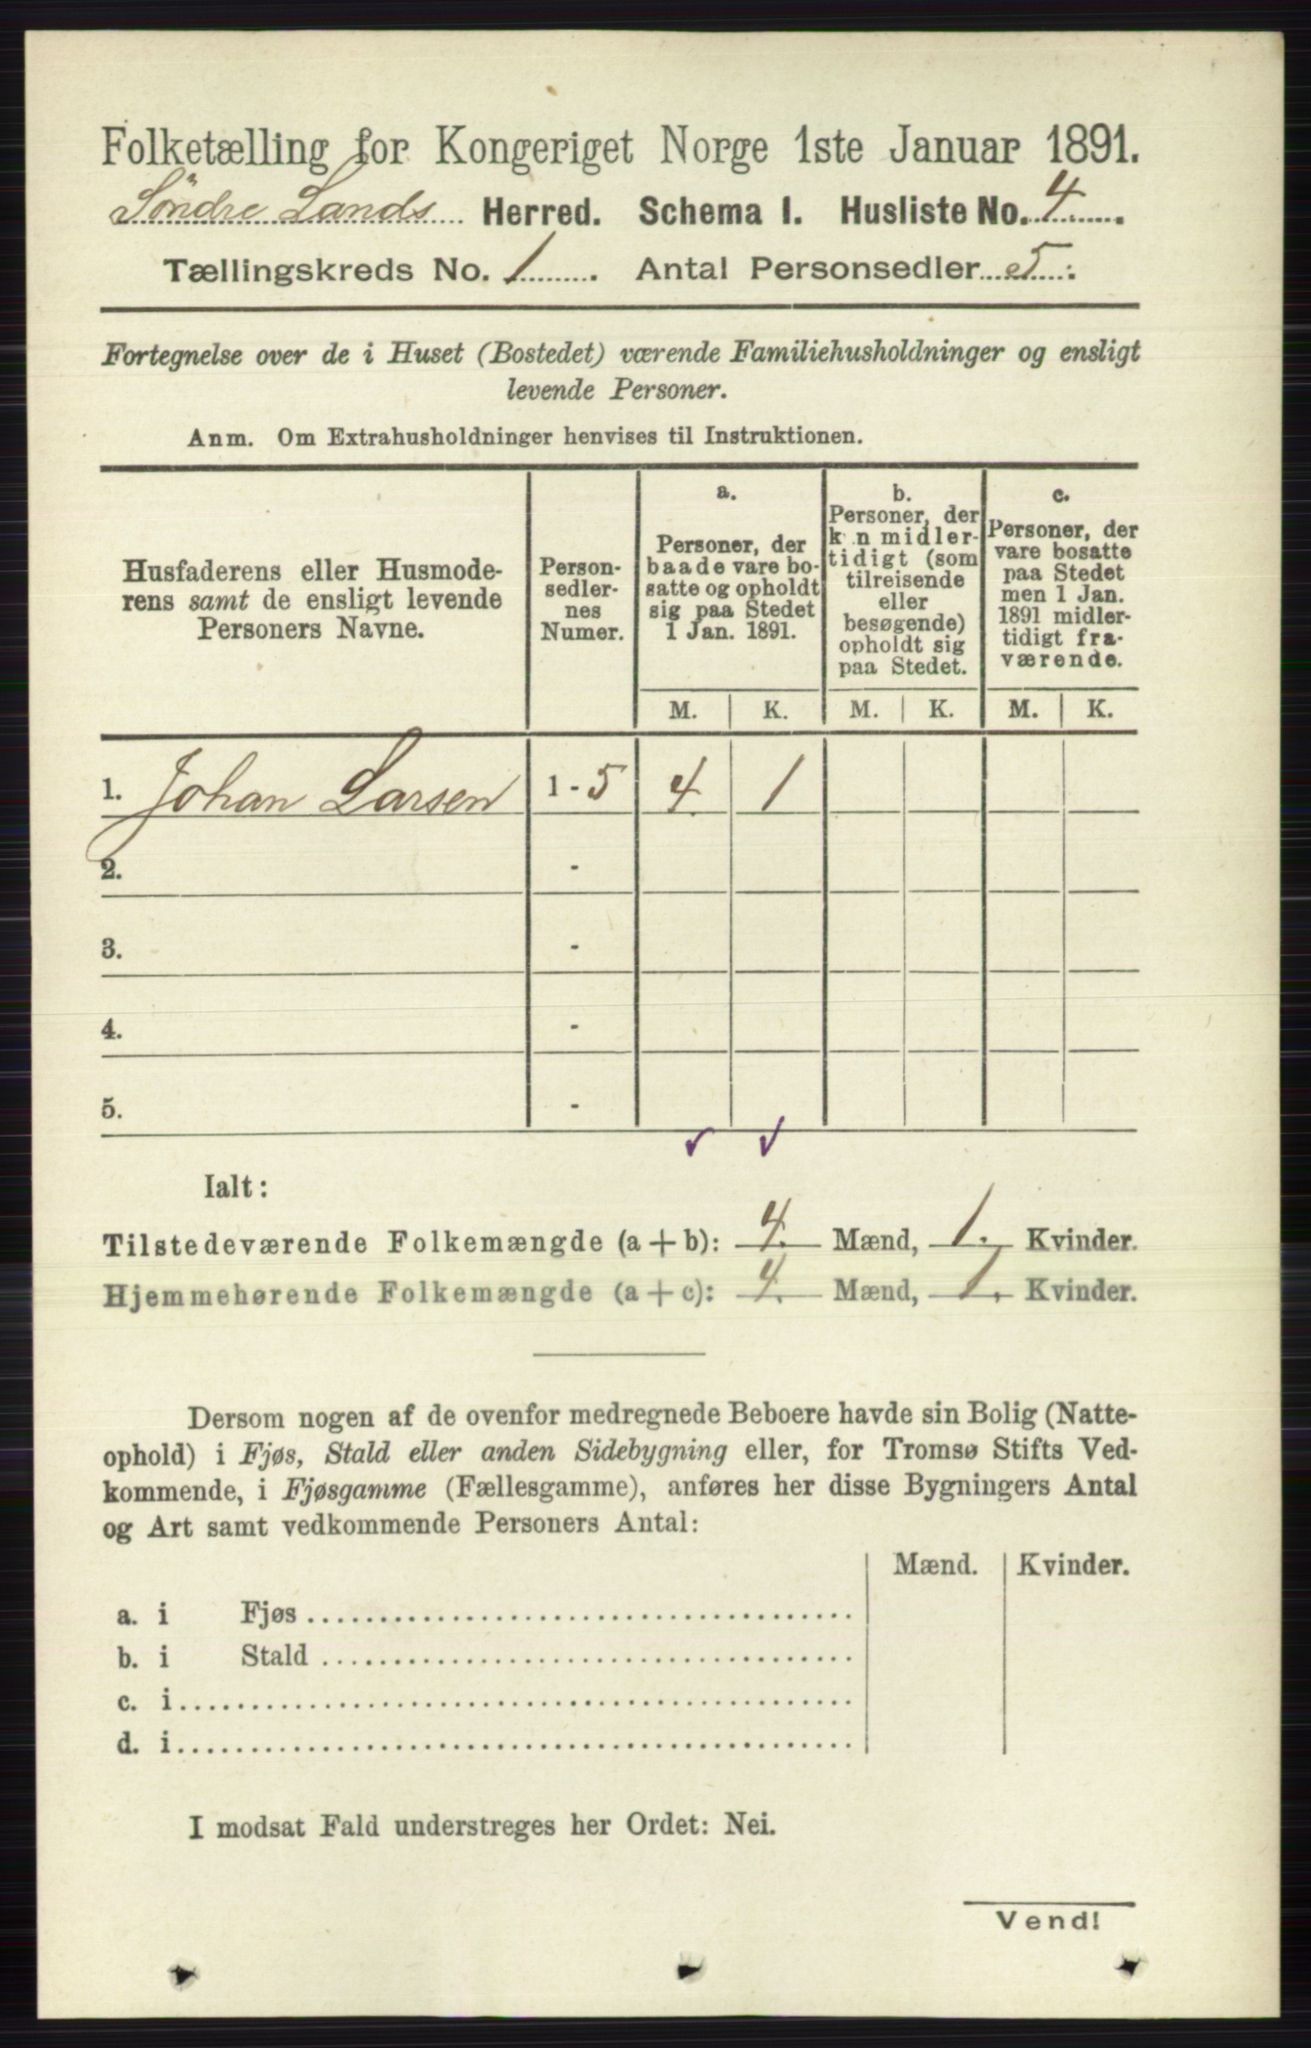 Folketælling for Kongeriget Norge 1ste Januar 1891.
Søndre Lands Herred. Schema I. Husliste No. 4
Tællingskreds No. 1. Antal Personsedler 5.
Fortegnelse over de i Huset (Bostedet) værende Familiehusholdninger og ensligt
levende Personer.
Anm. Om Extrahusholdninger henvises til Instruktionen.
Husfaderens eller Husmode-
rens samt de ensligt levende
Personers Navne.
Person-
sedler-
nes
Numer.
a.
Personer, der
baade vare bo-
satte og opholdt
sig paa Stedet
1 Jan. 1891.
b.
Personer, der
kun midler-
tidigt (som
tilreisende
eller
besøgende)
opholdt sig
paa Stedet.
c.
Personer, der
vare bosatte
paa Stedet
men 1 Jan.
1891 midler-
tidigt fra-
værende.
M. K. M. K. M. K.
1. Johan Larsen 1 - 5 4 1
2. -
3. -
4. -
5. -
Ialt:
Tilstedeværende Folkemængde (a + b): 4. Mænd, 1. Kvinder.
Hjemmehørende Folkemængde (a + c): 4. Mænd, 1. Kvinder.
Dersom nogen af de ovenfor medregnede Beboere havde sin Bolig (Natte-
ophold) i Fjøs, Stald eller anden Sidebygning eller, for Tromsø Stifts Ved-
kommende, i Fjøsgamme (Fællesgamme), anføres her disse Bygningers Antal
og Art samt vedkommende Personers Antal:
Mænd. Kvinder.
a. i Fjøs
b. i Stald
c. i
d. i
I modsat Fald understreges her Ordet: Nei.
Vend!